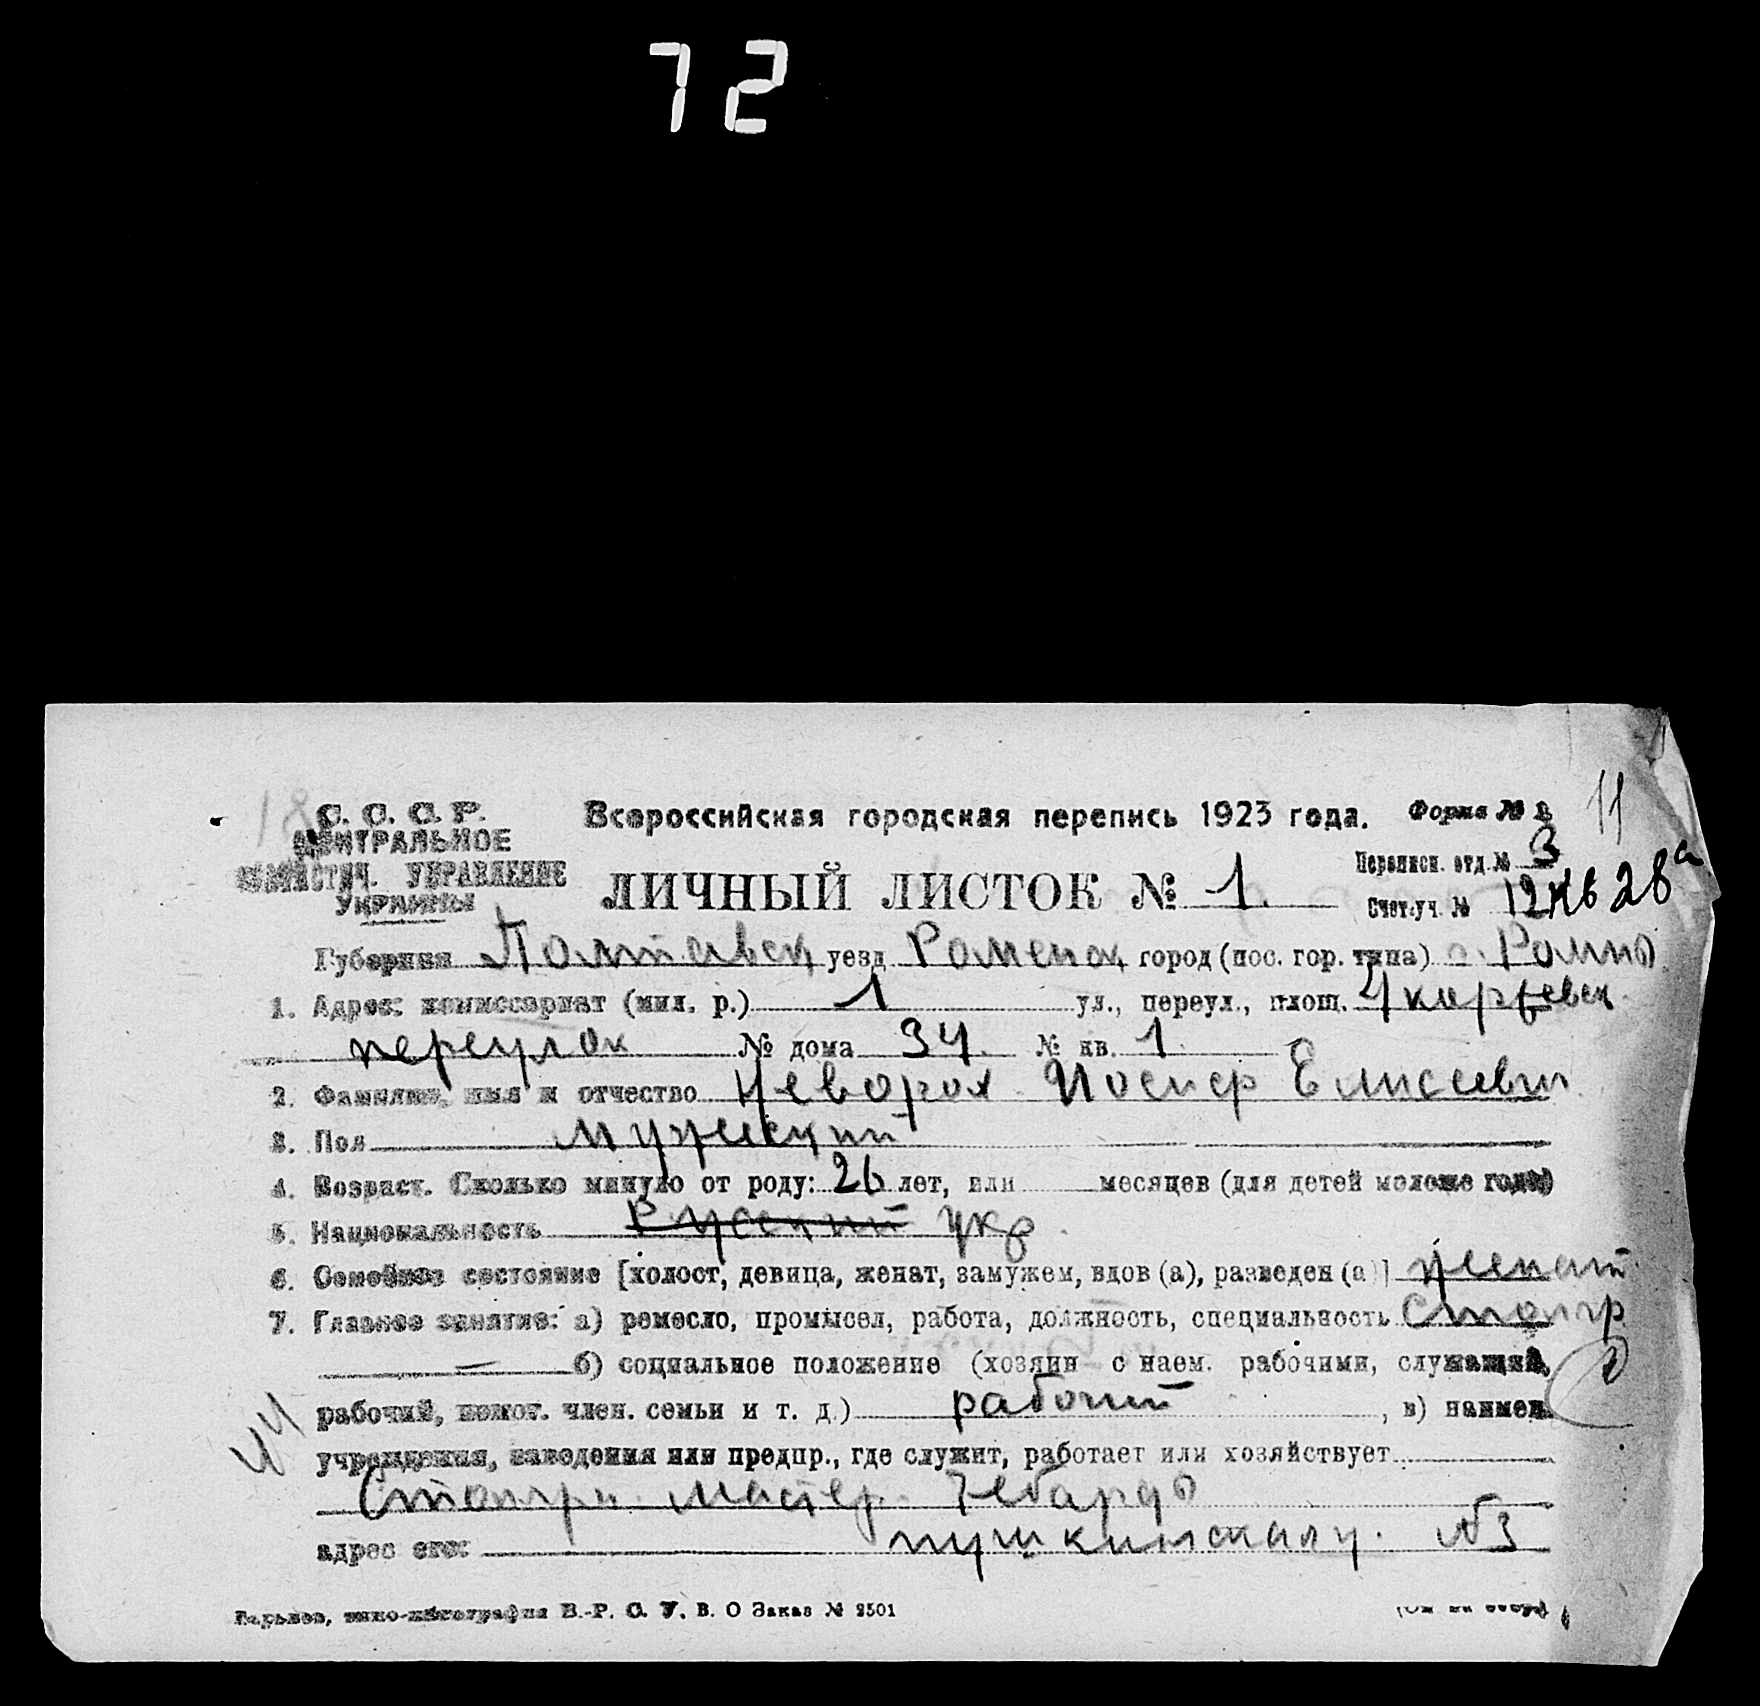 72
11
С. С. С. Р.
ЦЕНТРАЛЬНОЕ
СТАТИСТИЧ. УПРАВЛЕНИЕ
УКРАИНЫ
Всероссийская городская перепись 1923 года.
Форма №
Переписн. отд. № 3
ЛИЧНЫЙ ЛИСТОК № 1.
Счетн. уч. № 28а
Губерния Полтавск уезд Роменск город (пос. гор. типа) г. Ромны
1. Адрес: комиссариат (мил. р.) 1 ул., переул., площ.
переулок № дома 34. № кв. 1.
2. Фамилия, имя и отчество Иосиф Елисеевич
3. Пол мужеский
4. Возраст. Сколько минуло от роду: 26 лет, или месяцев (для детей моложе года)
5. Национальность Русский укр.
6. Семейное состояние [холост, девица, женат, замужем, вдов (а), разведен (а)] женат
7. Главное занятие: а) ремесло, промысел, работа, должность, специальность Столяр
б) социальное положение (хозяин с наем. рабочими, служащий,
рабочий, помог. член. семьи и т. д.) рабочий , в) наимен.
учреждения, заведения или предпр., где служит, работает или хозяйствует
Столярн. мастер.
адрес его: №3
Харьков, типо-литография В.-Р. С. У. В. О Заказ № 2501